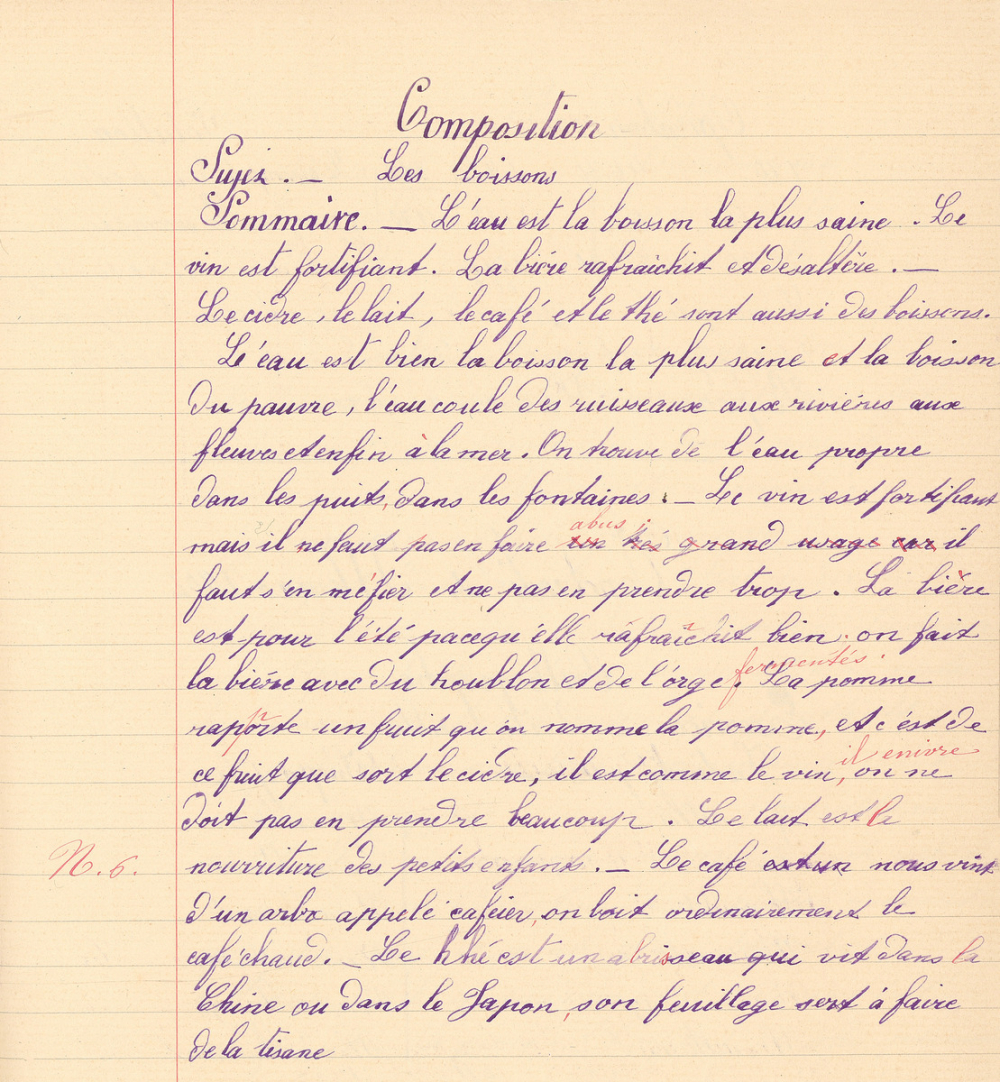 Composition
Sujet. — Les boissons
Sommaire. — L'eau est la boisson la plus saine. Le
vin est fortifiant. La bière rafraîchit et désaltère. —
Le cidre, le lait, le café et le thé sont aussi des boissons.
L'eau est bien la boisson la plus saine et la boisson
du pauvre, l'eau coule des ruisseaux aux rivières aux
fleuves et enfin à la mer. On trouve de l'eau propre
dans les puits, dans les fontaines. — Le vin est fortifiant
abus
mais il ne faut pas en faire un très grand usage car il
faut s'en méfier et ne pas en prendre trop. La bière
est pour l'été pacequ'elle rafraîchit bien. on fait
fermentés.
la bière avec du houblon et de l'orge. La pomme
rapporte un fruit qu'on nomme la pomme, et c'est de
il enivre
ce fruit que sort le cidre, il est comme le vin, on ne
doit pas en prendre beaucoup. Le lait est la
N. 6.
nourriture des petits enfants. — Le café est un nous vint
d'un arbre appelé caféier, on boit ordinairement le
café chaud. — Le thé est un abrisseau qui vit dans la
Chine ou dans le Japon, son feuillage sert à faire
de la tisane